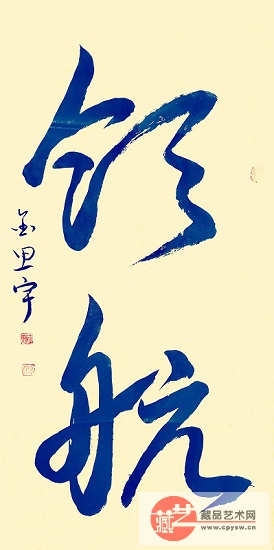 领航
金思宇
藏艺
藏品艺术网
www.cpysw.cn